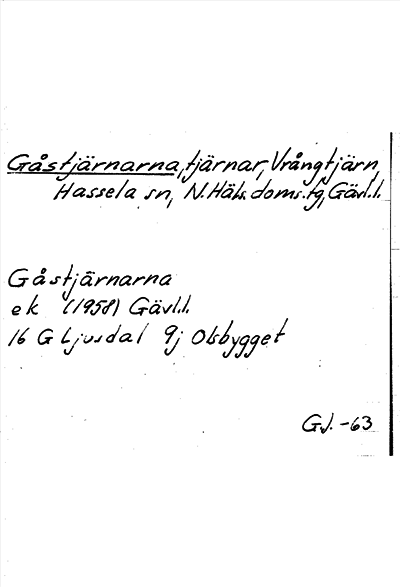 Gåstjärnarna, tjärnar, Vrångtjärn,
Hassela sn, N. Häls. doms. tg, Gävl.l.
Gåstjärnarna
ek (1958) Gävl.l.
16 G Ljusdal 9j Olsbygget
GJ. -63